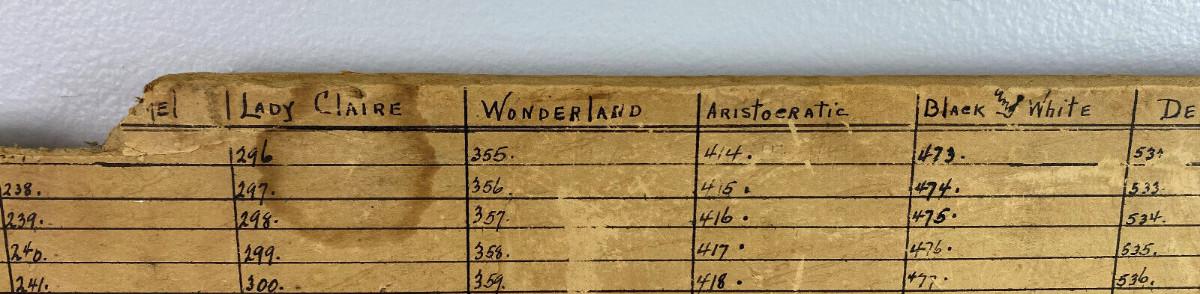 Lady Claire Wonderland Aristocratic Black and White
296 355. 414. 473.
238. 297. 356. 415. 474. 533.
239. 298. 357. 416. 475. 534.
240. 299. 358. 417. 476. 535.
241. 300. 359. 418. 477. 536.